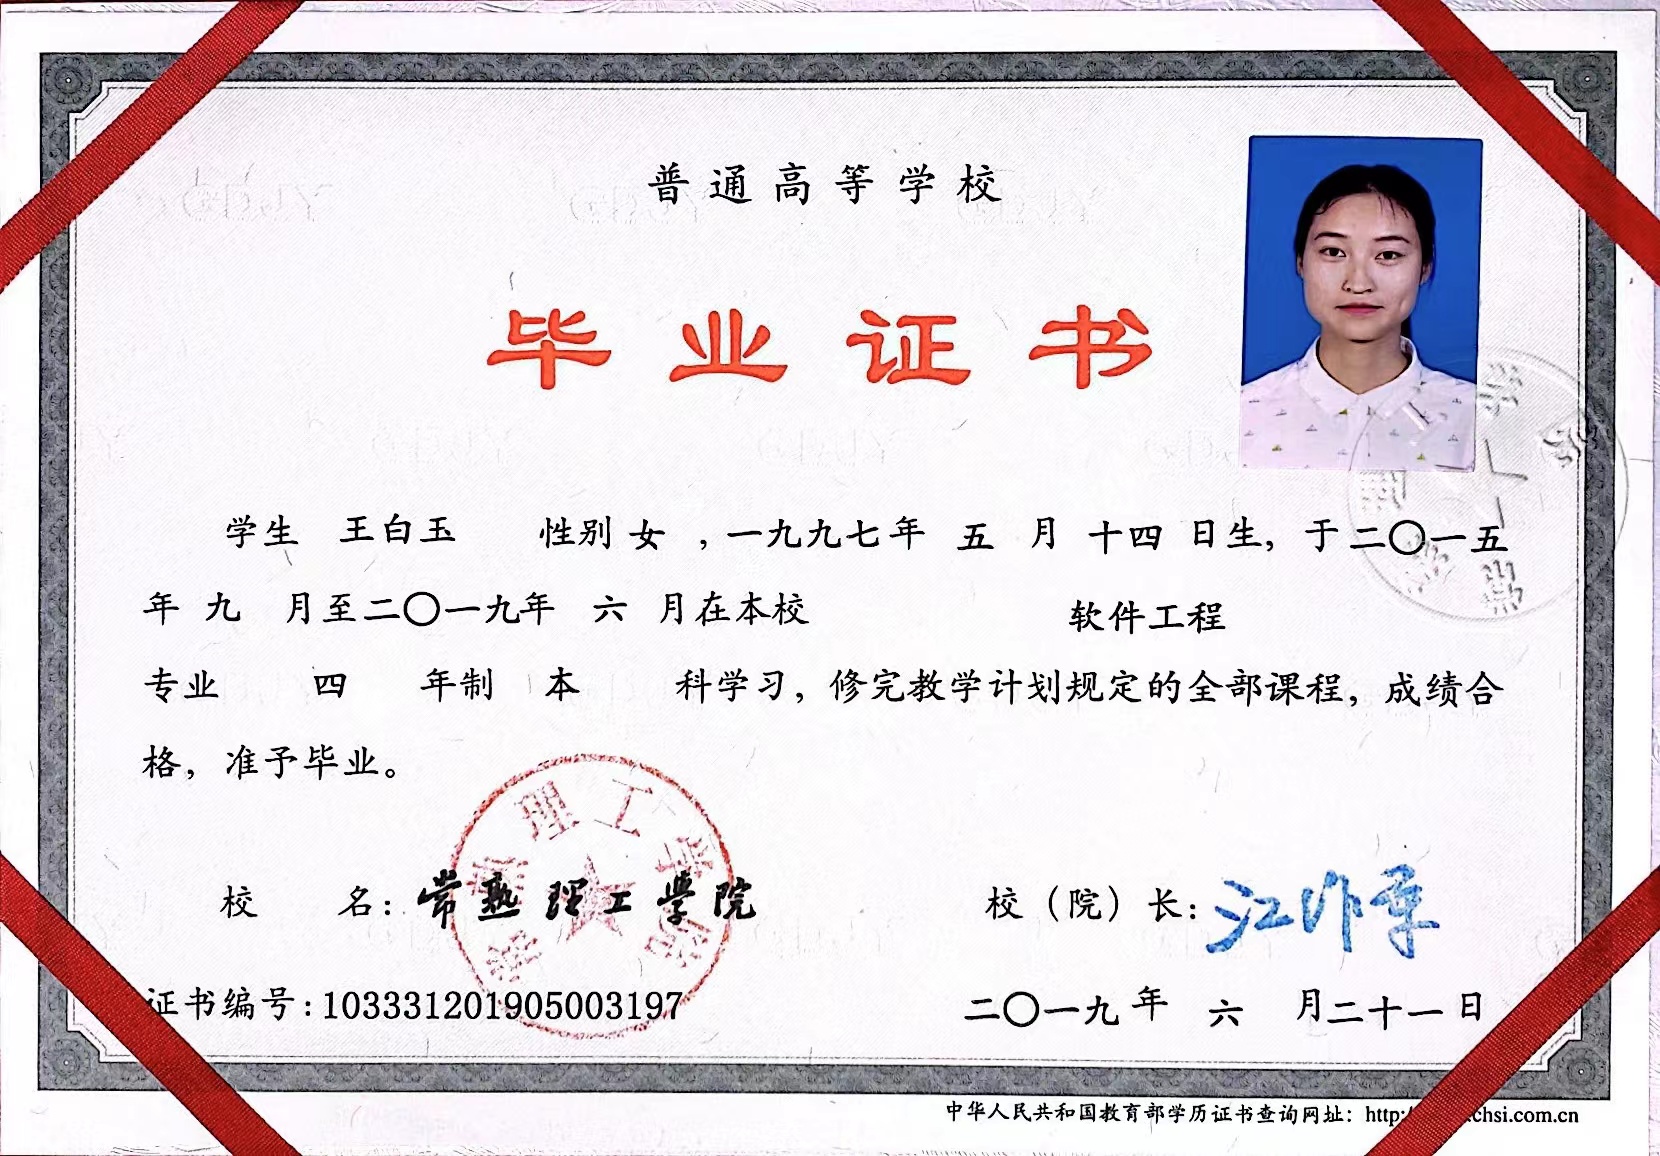 普通高等学校
毕业证书
学生 王白玉 性别 女 ，一九九七年 五 月 十四 日生，于二〇一五
年 九 月至二〇一九年 六 月在本校 软件工程
专业 四 年制 本 科学习，修完教学计划规定的全部课程，成绩合
格，准予毕业。
校 名：常熟理工学院
校（院）长：江作军
证书编号：103331201905003197
二〇一九 年 六 月二十一日
中华人民共和国教育部学历证书查询网址：http:/ chsi.com.cn